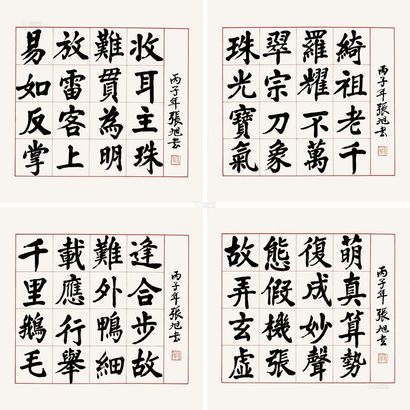 易放難收
如雷貫耳
反客為主
掌上明珠
丙子年張旭書
珠翠羅綺
光宗耀祖
寶刀不老
氣象萬千
丙子年張旭書
千載難逢
里應外合
鵝行鴨步
毛舉細故
丙子年張旭書
故態復萌
弄假成真
玄機妙算
虛張聲勢
丙子年張旭書